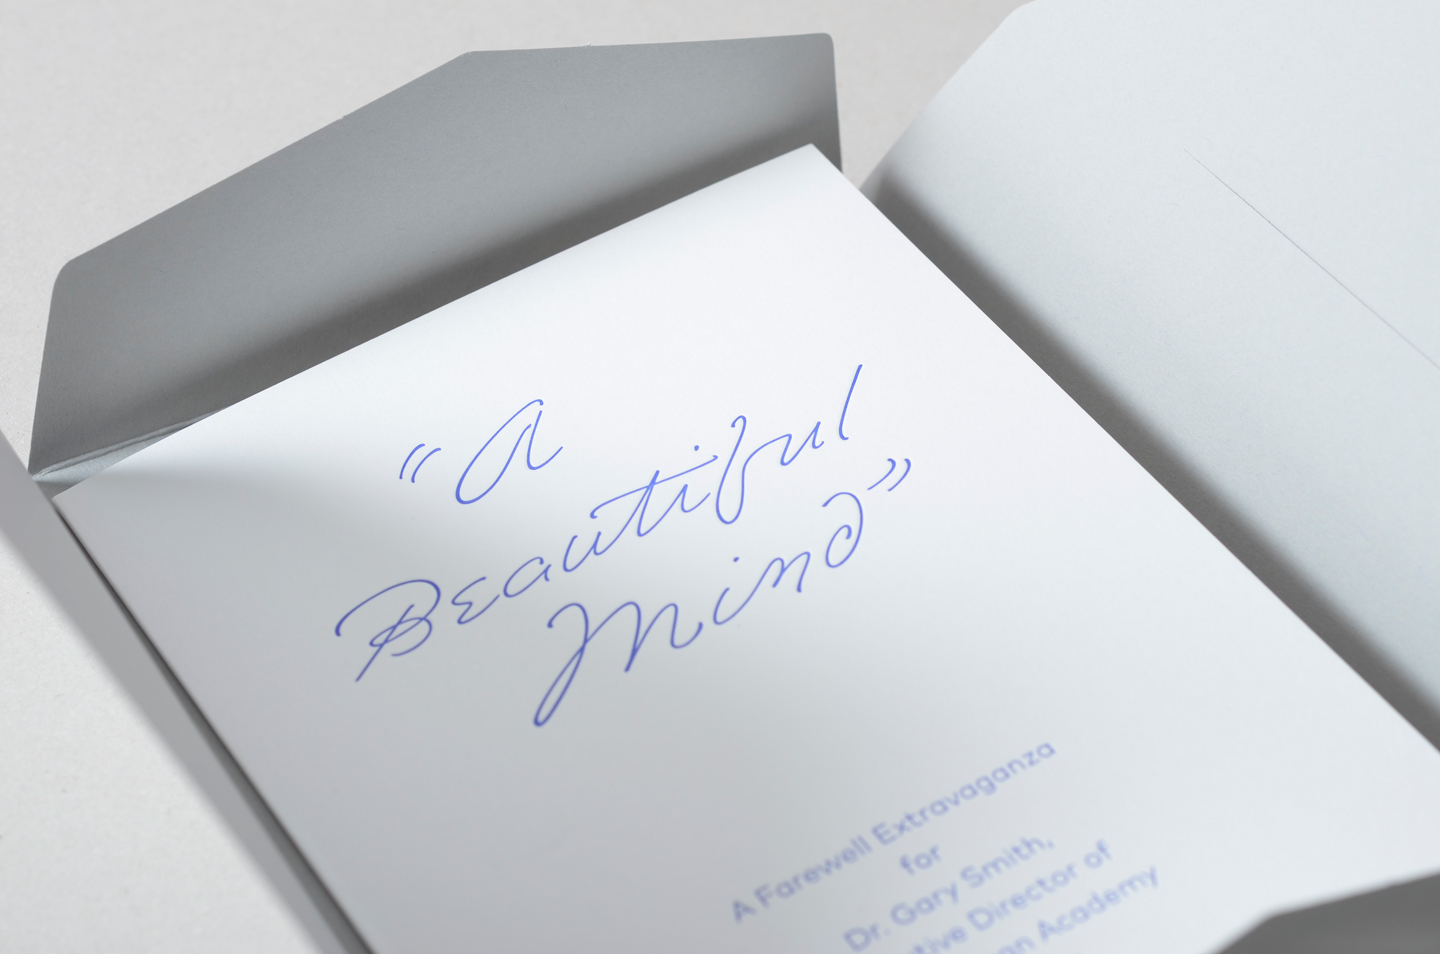 “A
Beautiful
Mind”
A Farewell Extravaganza
for
Dr. Gary Smith,
Director of
Academy